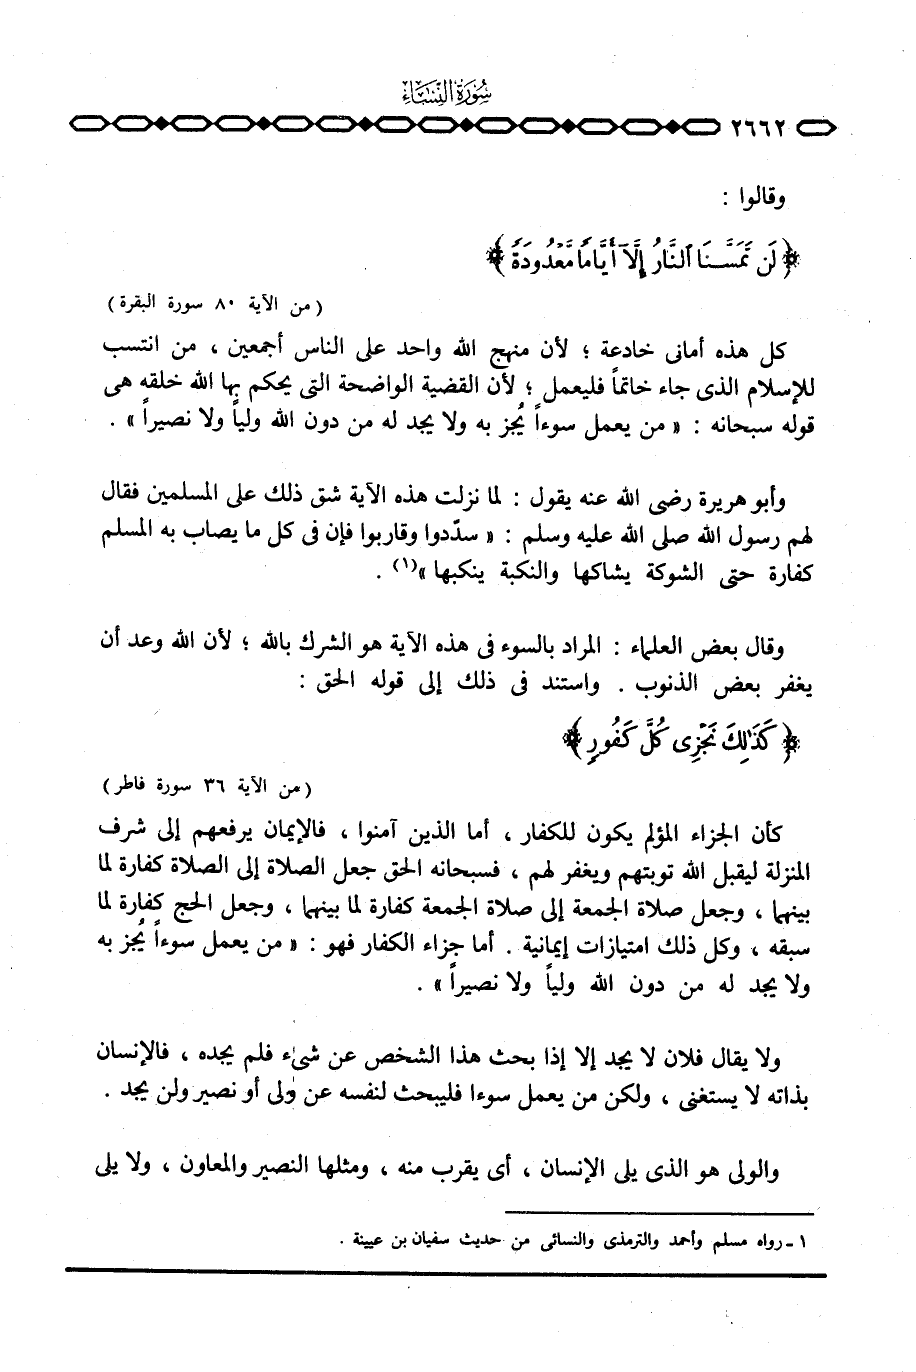 سُورَةُ النِّسَاءِ
٢٦٦٢
وقالوا :
﴿ لَن تَمَسَّنَا ٱلنَّارُ إِلَّآ أَيَّامًا مَّعْدُودَةً ﴾
( من الآية ٨٠ سورة البقرة )
كل هذه أمانى خادعة ؛ لأن منهج الله واحد على الناس أجمعين ، من انتسب
للإسلام الذى جاء خاتماً فليعمل ؛ لأن القضية الواضحة التى يحكم بها الله خلقه هى
قوله سبحانه : « من يعمل سوءاً يُجز به ولا يجد له من دون الله ولياً ولا نصيراً » .
وأبو هريرة رضى الله عنه يقول : لما نزلت هذه الآية شق ذلك على المسلمين فقال
لهم رسول الله صلى الله عليه وسلم : « سدّدوا وقاربوا فإن فى كل ما يصاب به المسلم
كفارة حتى الشوكة يشاكها والنكبة ينكبها »(١) .
وقال بعض العلماء : المراد بالسوء فى هذه الآية هو الشرك بالله ؛ لأن الله وعد أن
يغفر بعض الذنوب . واستند فى ذلك إلى قوله الحق :
﴿ كَذَٰلِكَ نَجْزِى كُلَّ كَفُورٍ ﴾
( من الآية ٣٦ سورة فاطر )
كأن الجزاء المؤلم يكون للكفار ، أما الذين آمنوا ، فالإيمان يرفعهم إلى شرف
المنزلة ليقبل الله توبتهم ويغفر لهم ، فسبحانه الحق جعل الصلاة إلى الصلاة كفارة لما
بينهما ، وجعل صلاة الجمعة إلى صلاة الجمعة كفارة لما بينهما ، وجعل الحج كفارة لما
سبقه ، وكل ذلك امتيازات إيمانية . أما جزاء الكفار فهو : « من يعمل سوءاً يُجز به
ولا يجد له من دون الله ولياً ولا نصيراً » .
ولا يقال فلان لا يجد إلا إذا بحث هذا الشخص عن شىء فلم يجده ، فالإنسان
بذاته لا يستغنى ، ولكن من يعمل سوءا فليبحث لنفسه عن ولى أو نصير ولن يجد .
والولى هو الذى يلى الإنسان ، أى يقرب منه ، ومثلها النصير والمعاون ، ولا يلى
١ - رواه مسلم وأحمد والترمذى والنسائى من حديث سفيان بن عيينة .